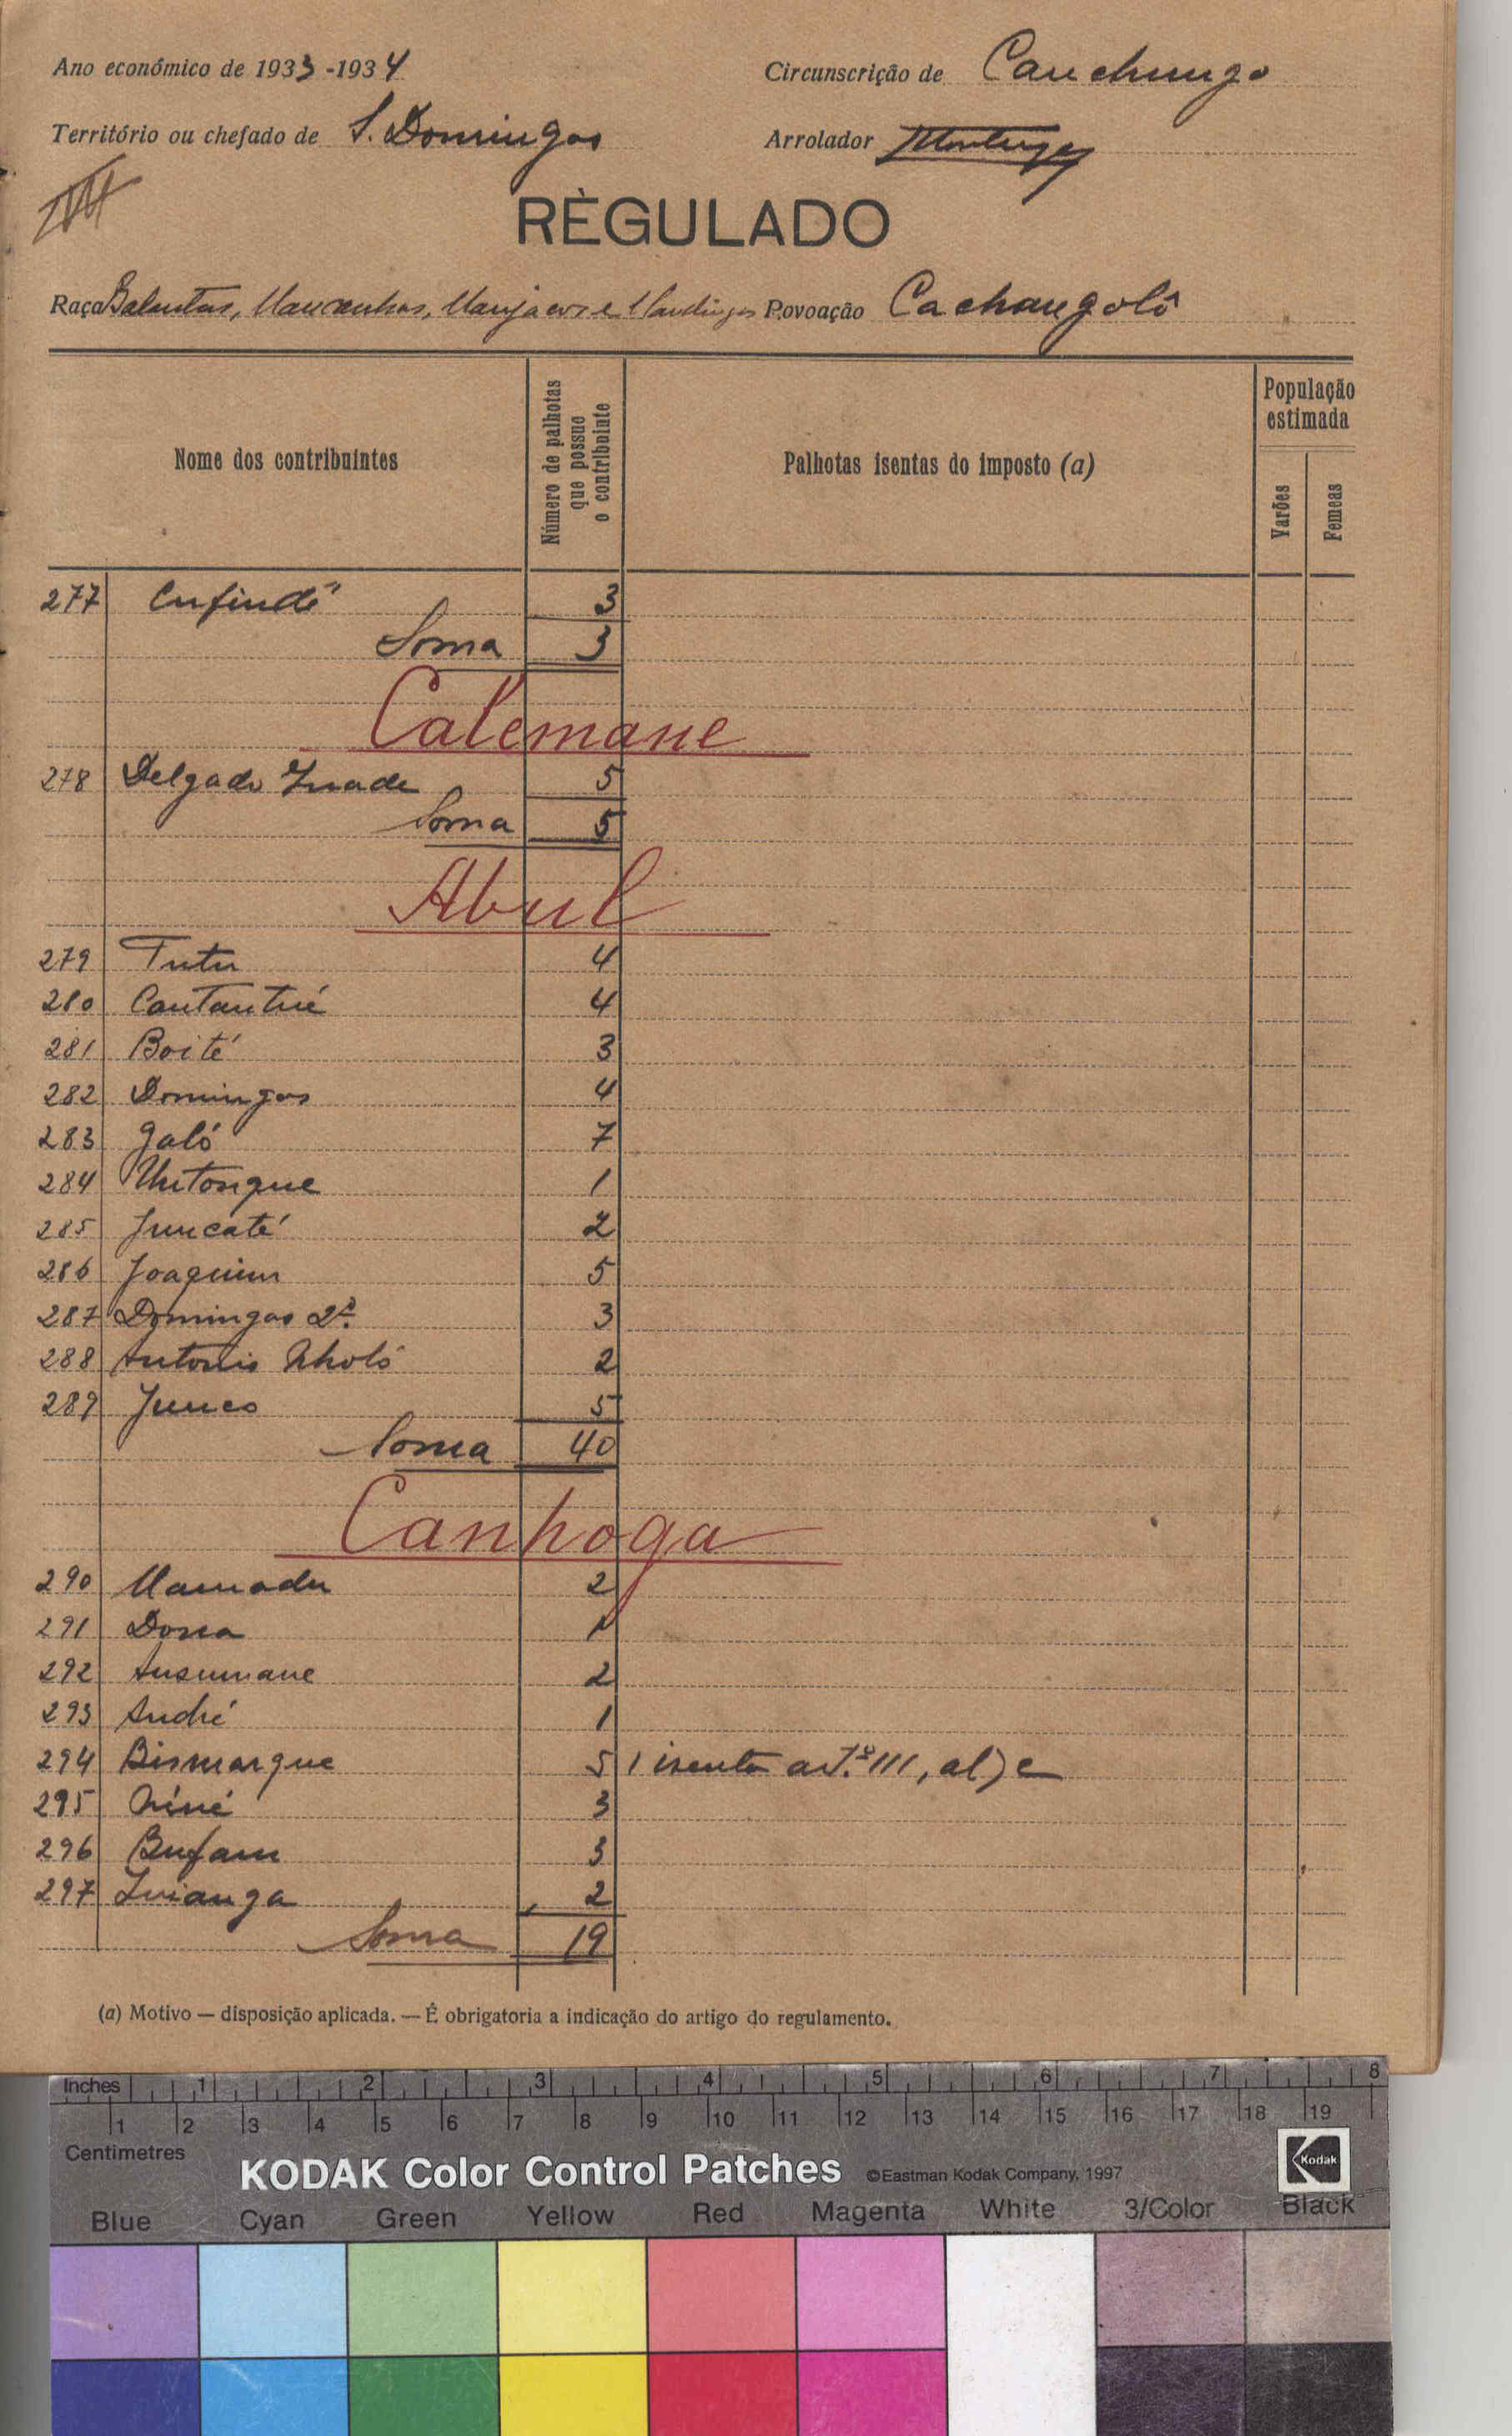 Ano económico de 1933-1934
Circunscrição de Canchungo
Território ou chefado de S. Domingos
Arrolador
RÈGULADO
Raça Balantas, Mancanhas, Manjacos e Mandingas Povoação Cachangolô
Nome dos contribuintes
Número de palhotas que possue o contribuinte
Palhotas isentas do imposto (a)
População estimada
Varões
Femeas
277 Enfindé 3
Soma 3
Calemane
278 Delgado 5
Soma 5
Abul
279 Tutu 4
280 Cantantué 4
281 Boité 3
282 Domingos 4
283 Galó 7
284 Untongue 1
285 Juncaté 2
286 Joaquim 5
287 Domingos 2º. 3
288 Antonio Nholó 2
289 Junco 5
Soma 40
Canhoga
290 Mamadu 2
291 Dona 1
292 Ansumane 2
293 André 1
294 Bismarque 5 1 isenta art.º 111, al) c
295 Niné 3
296 Bufam 3
297 Inianga 2
Soma 19
(a) Motivo — disposição aplicada. — É obrigatoria a indicação do artigo do regulamento.
Inches 1 2 3 4 5 6 7 8
1 2 3 4 5 6 7 8 9 10 11 12 13 14 15 16 17 18 19
Centimetres
KODAK Color Control Patches ©Eastman Kodak Company, 1997 Kodak
Blue Cyan Green Yellow Red Magenta White 3/Color Black